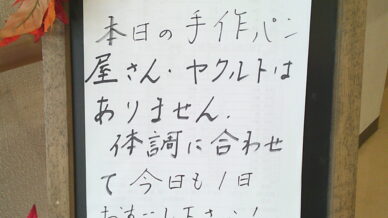 本日の手作パン
屋さん・ヤクルトは
ありません.
体調に合わせ
て今日も1日